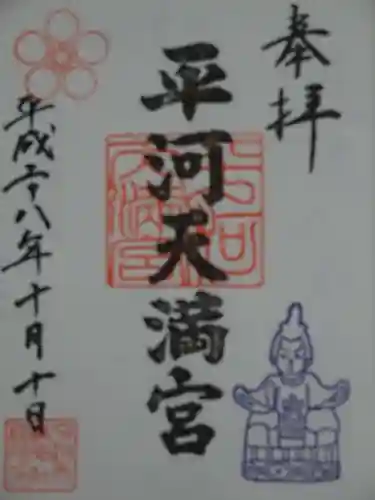 奉拝
平河天満宮
平成二十八年十月十日